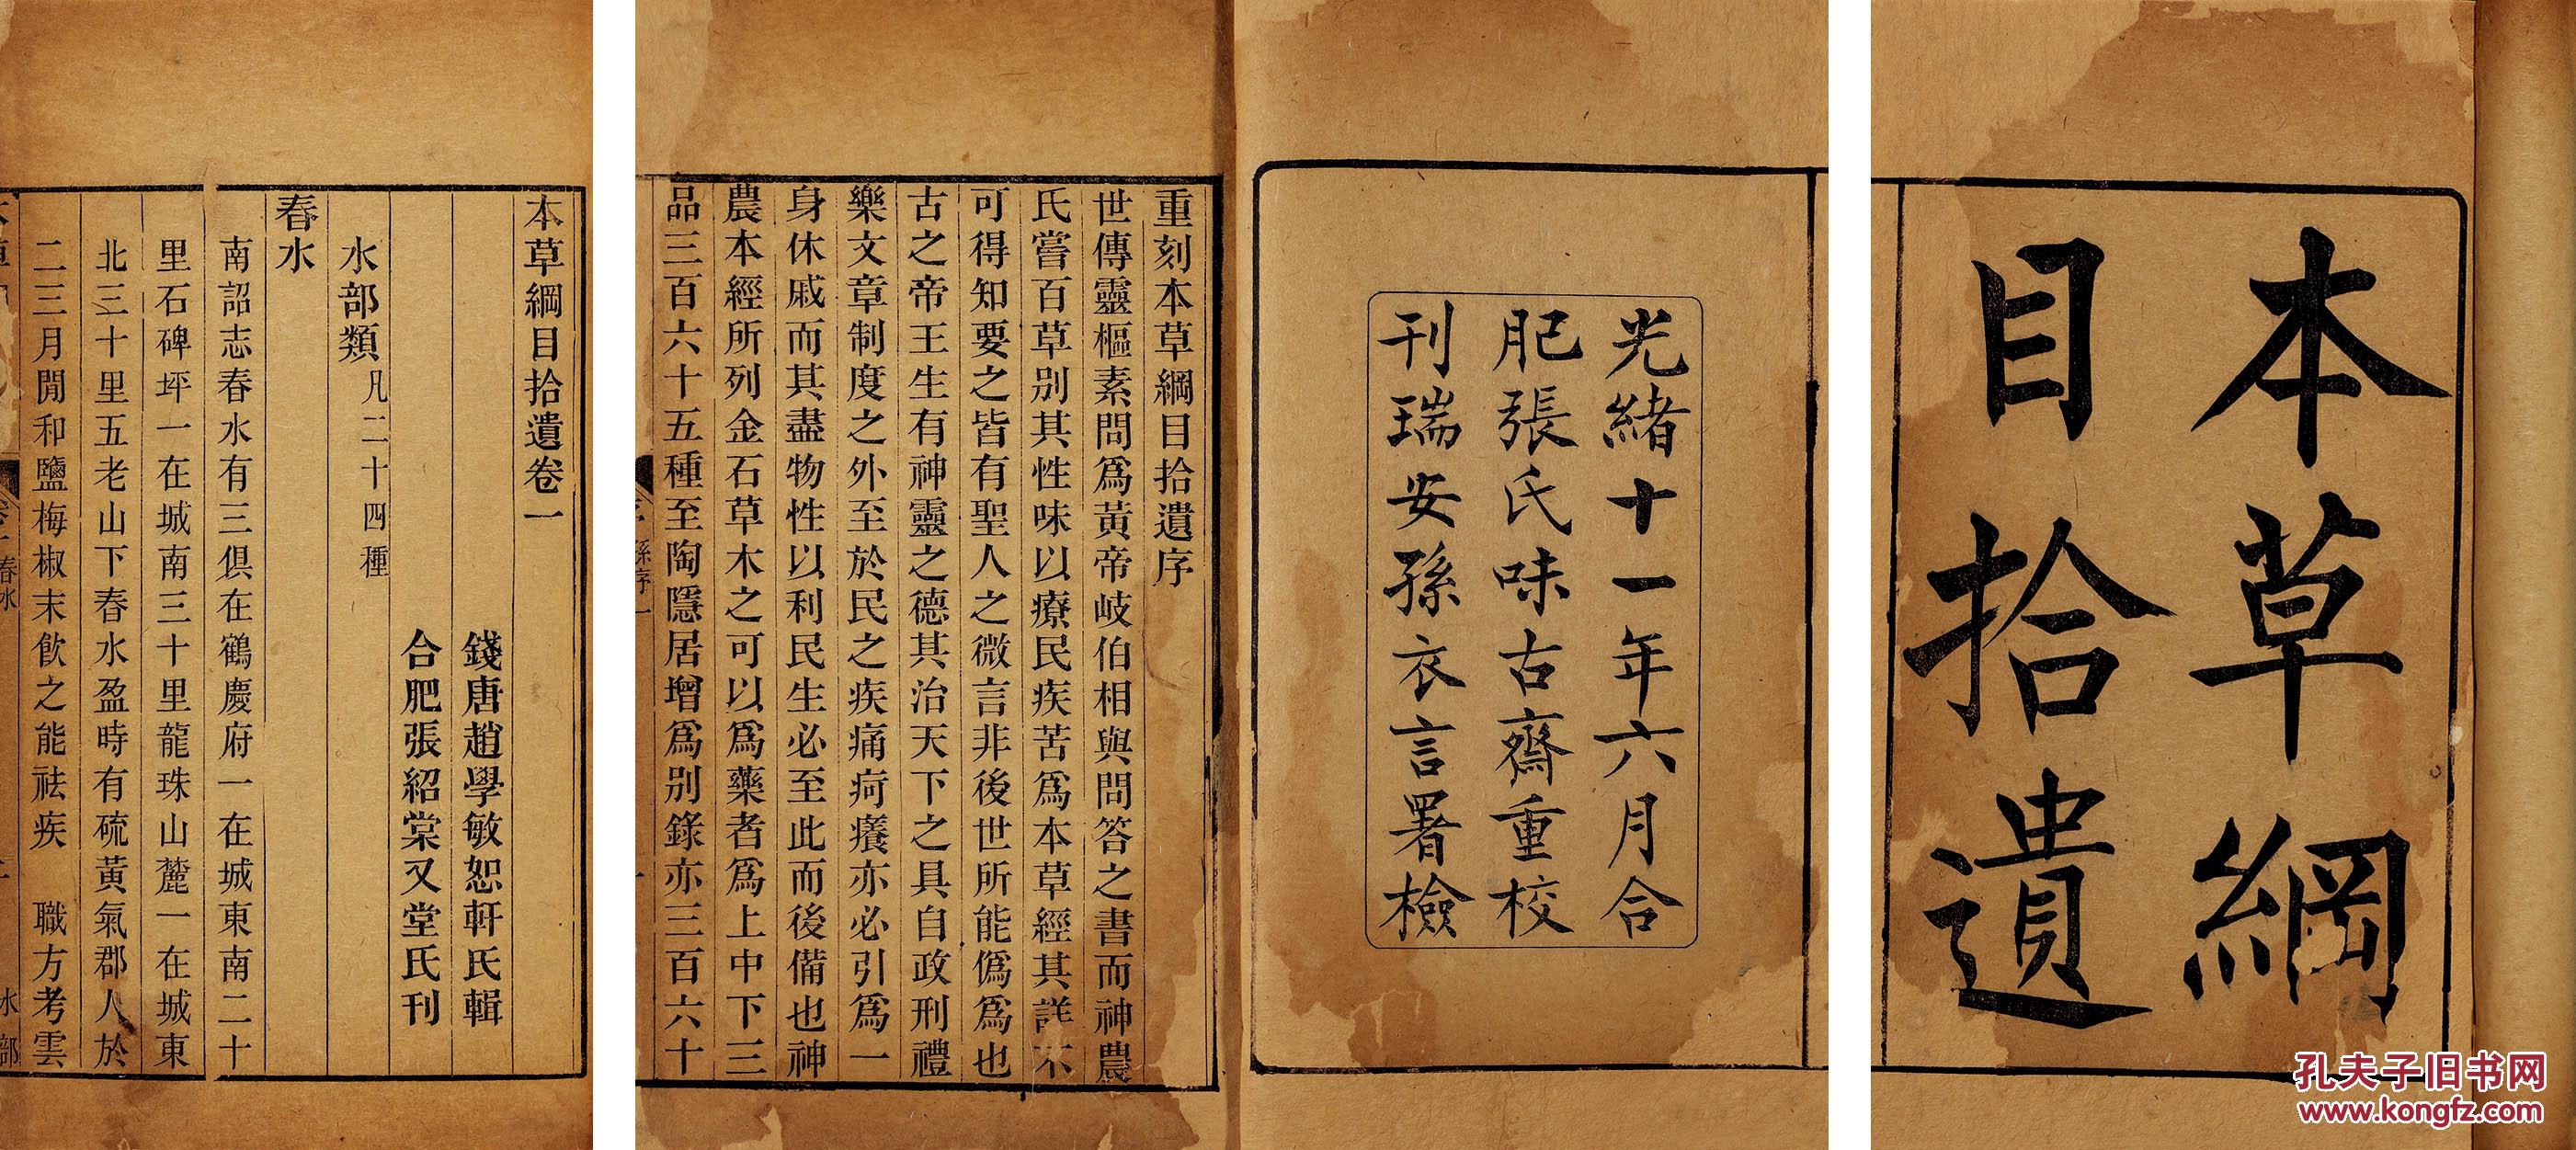 本草綱
目拾遺
光緒十一年六月合
肥張氏味古齋重校
刊瑞安孫衣言署檢
重刻本草綱目拾遺序
世傳靈樞素問爲黃帝岐伯相與問答之書而神農
氏嘗百草别其性味以療民疾苦爲本草經其詳不
可得知要之皆有聖人之微言非後世所能僞爲也
古之帝王生有神靈之德其治天下之具自政刑禮
樂文章制度之外至於民之疾痛疴癢亦必引爲一
身休戚而其盡物性以利民生必至此而後備也神
農本經所列金石草木之可以爲藥者爲上中下三
品三百六十五種至陶隱居增爲别錄亦三百六十
孫序 一
本草綱目拾遺卷一
錢唐趙學敏恕軒氏輯
合肥張紹棠又堂氏刊
水部類凡二十四種
春水
南詔志春水有三俱在鶴慶府一在城東南二十
里石碑坪一在城南三十里龍珠山麓一在城東
北三十里五老山下春水盈時有硫黃氣郡人於
二三月閒和鹽梅椒末飮之能祛疾 職方考雲
春水
水部
孔夫子旧书网
www.kongfz.com